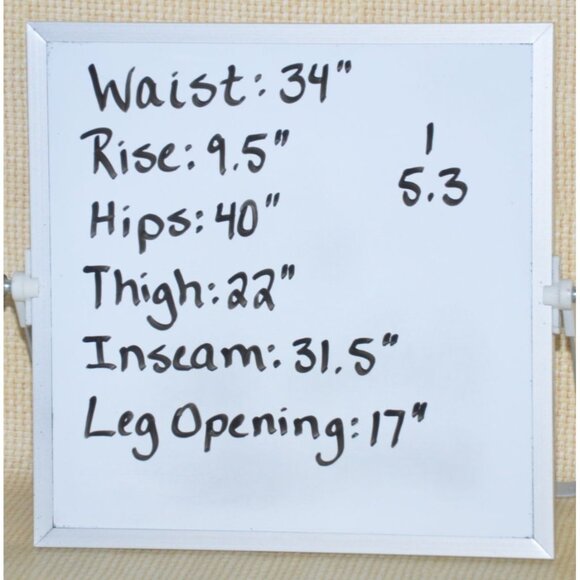 Waist: 34"
Rise: 9.5"
1
5.3
Hips: 40"
Thigh: 22"
Inseam: 31.5"
Leg Opening: 17"